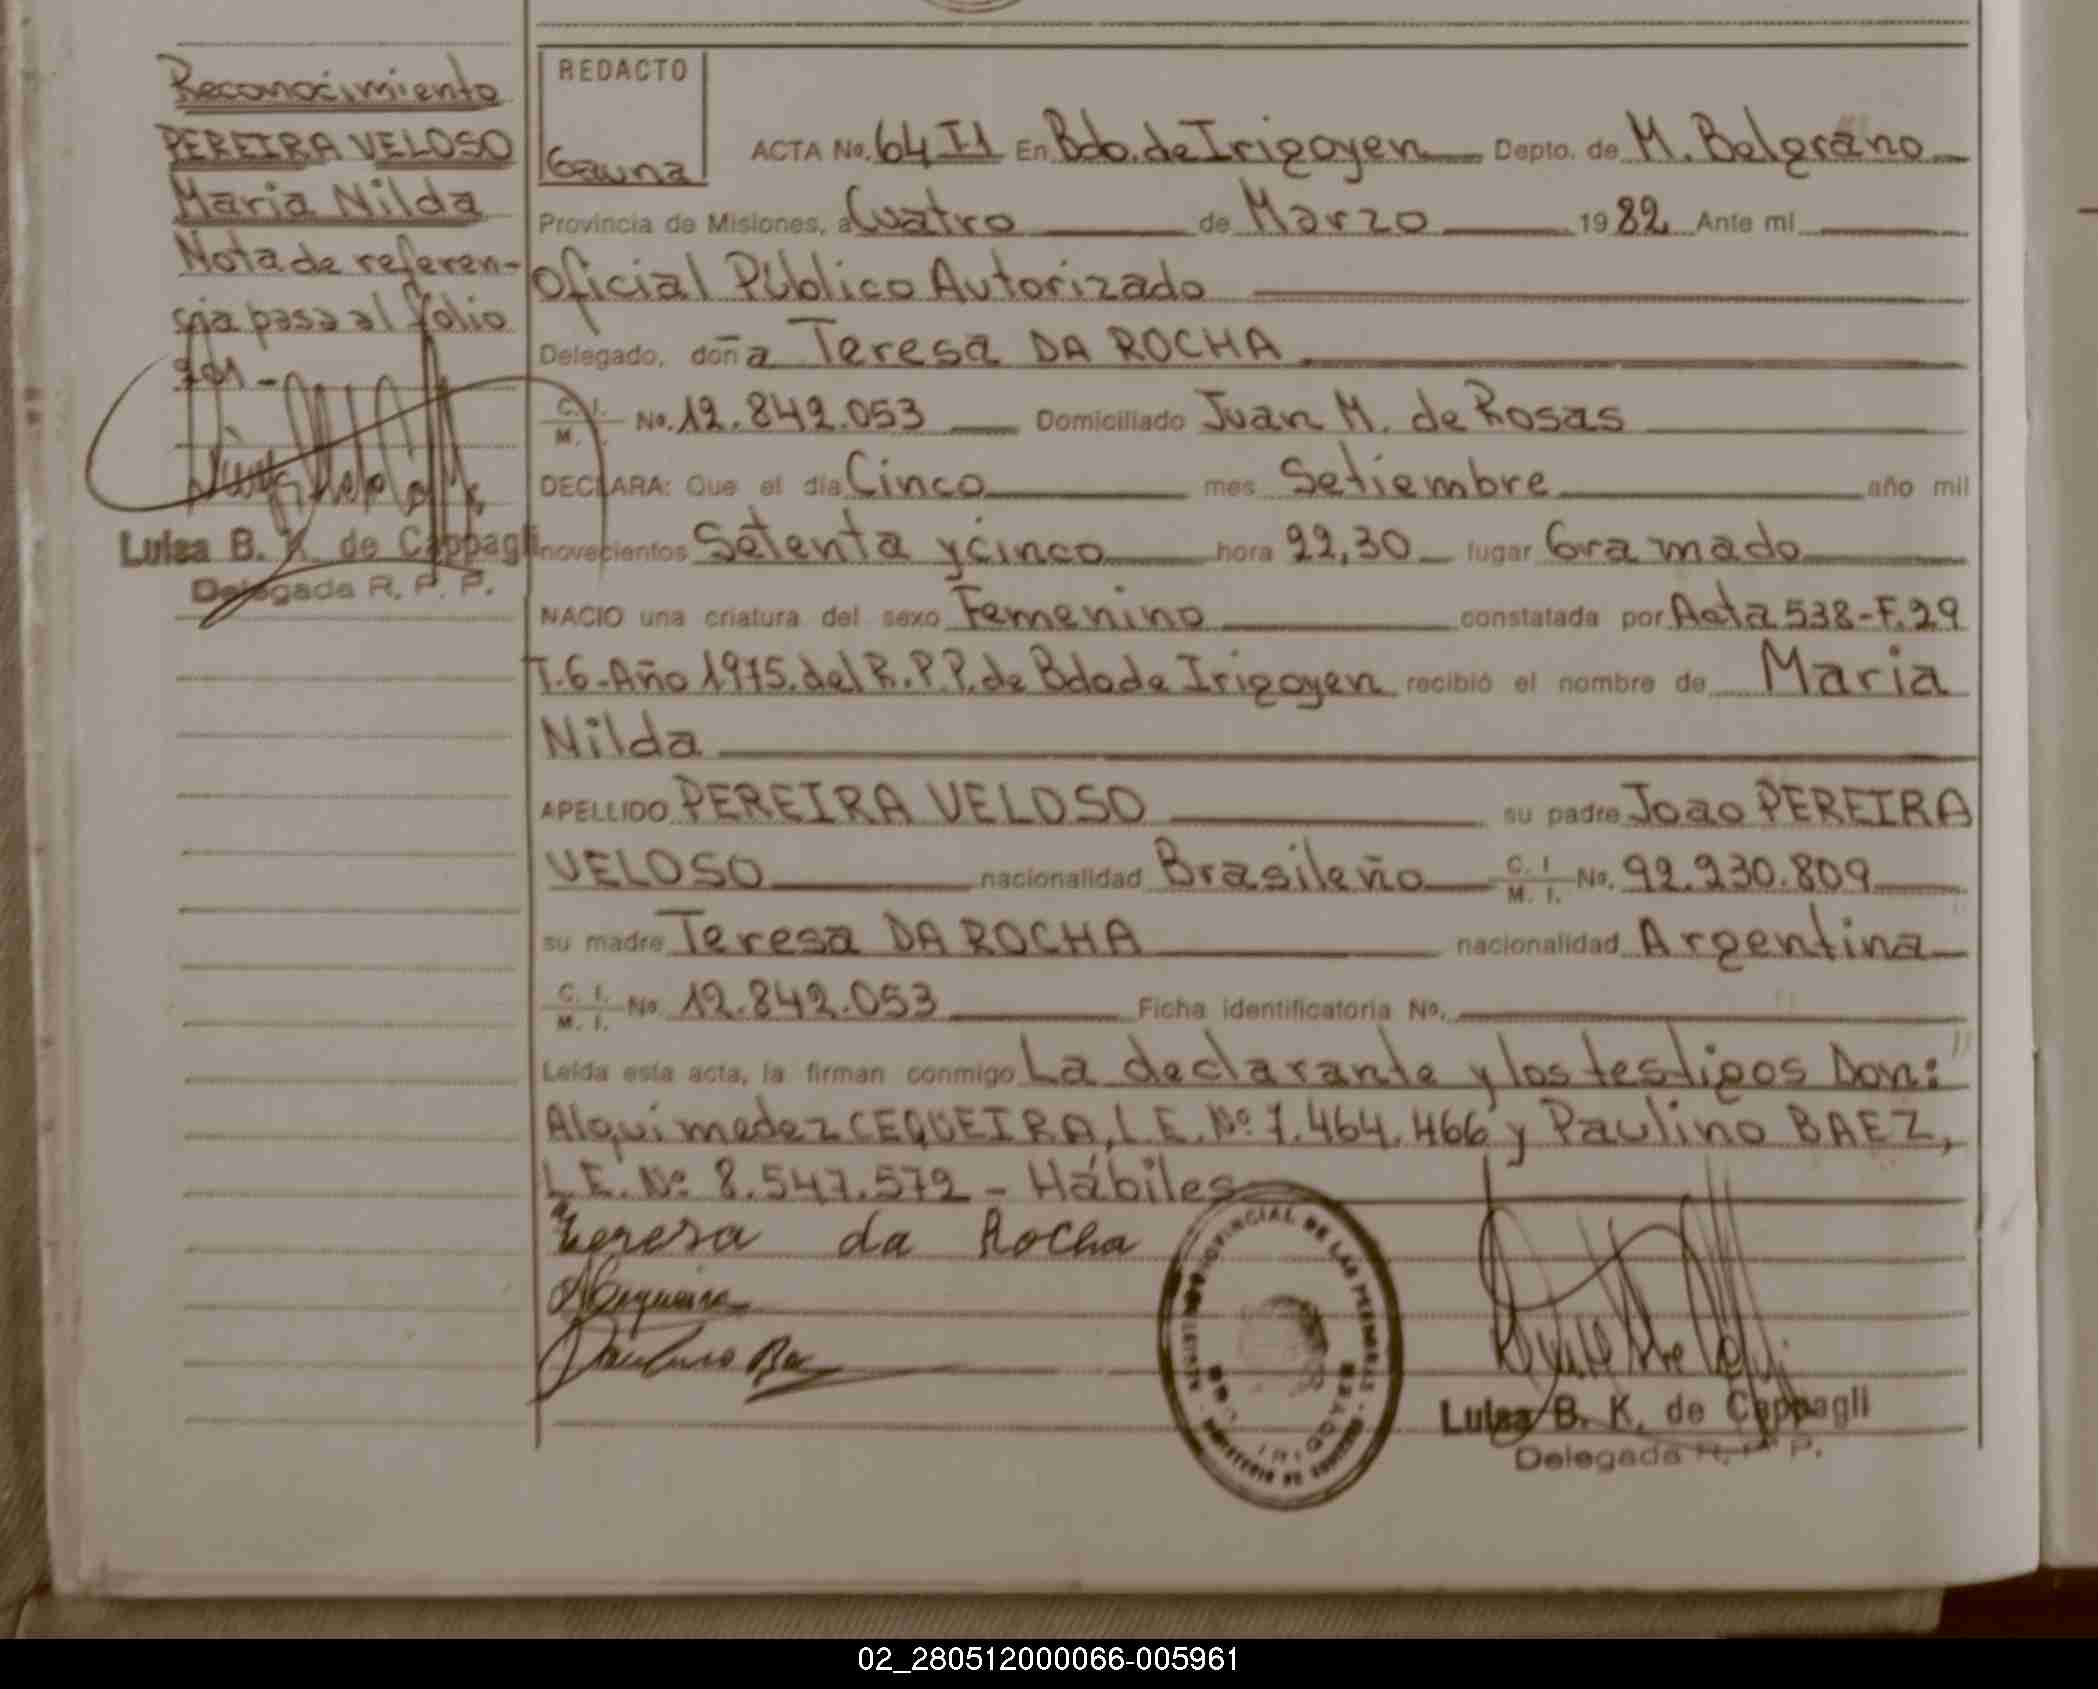 Reconocimiento
PEREIRA VELOSO
Maria Nilda
Nota de referen-
cia pasa al folio
Luisa B. K. de Cappagli
Delegada R. P. P.
REDACTO
Gauna
ACTA No. 64 T1 En Bdo. de Irigoyen Depto. de M. Belgrano
Provincia de Misiones, a Cuatro de Marzo 1982 Ante mi
Oficial Público Autorizado
Delegado, doña Teresa DA ROCHA
C. I. M. I. No. 12.842.053 Domiciliado Juan M. de Rosas
DECLARA: Que el día Cinco mes Setiembre año mil
novecientos Setenta y cinco hora 22,30 lugar Gramado
NACIO una criatura del sexo Femenino constatada por Acta 538-F.29
T.6-Año 1975. del R.P.P. de Bdo de Irigoyen recibió el nombre de Maria
Nilda
APELLIDO PEREIRA VELOSO su padre Joao PEREIRA
VELOSO nacionalidad Brasileño C. I. M. I. No. 92.230.809
su madre Teresa DA ROCHA nacionalidad Argentina
C. I. M. I. No. 12.842.053 Ficha identificatoria No.
Leída esta acta, la firman conmigo La declarante y los testigos Don:
Alquimedez CEQUEIRA, L.E. Nº 7.464.466 y Paulino BAEZ,
L.E. Nº 8.547.579 - Hábiles
Teresa da Rocha
Paulino Baez
PROVINCIAL DE LAS PERSONAS
Luisa B. K. de Cappagli
Delegada R. P. P.
02_280512000066-005961